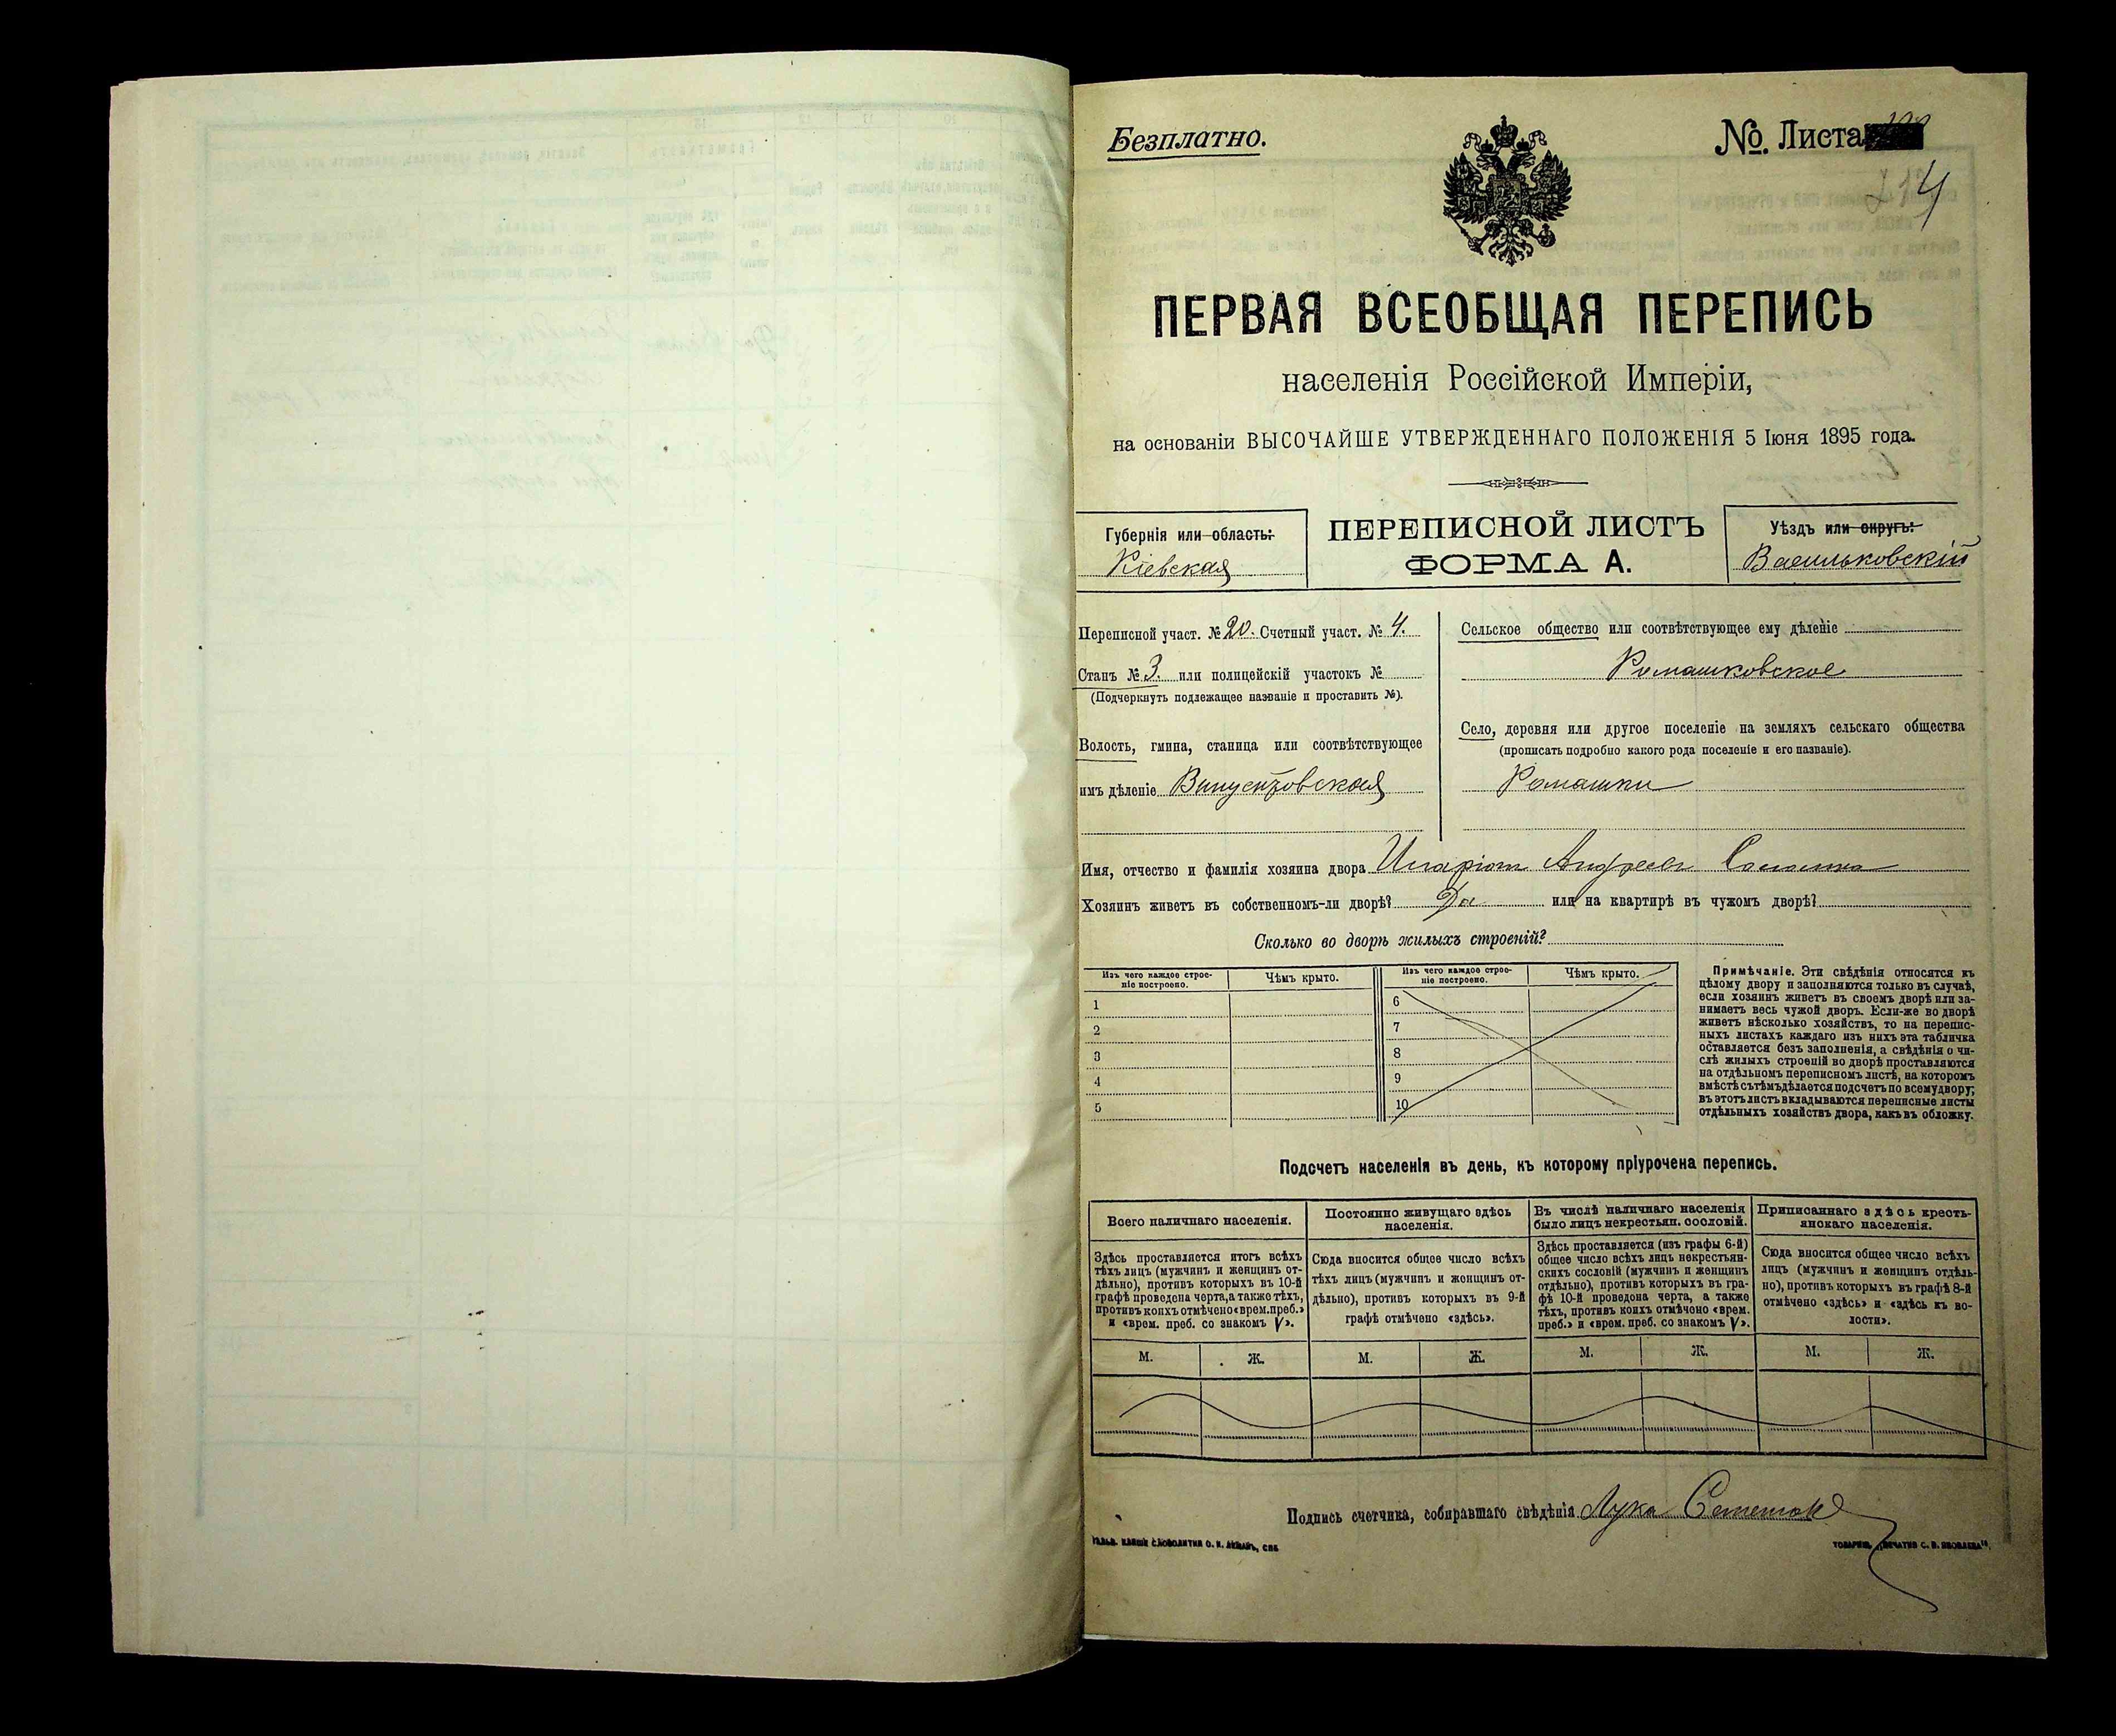 Безплатно.
№. Листа
214
ПЕРВАЯ ВСЕОБЩАЯ ПЕРЕПИСЬ
населенія Россійской Имперіи,
на основаніи ВЫСОЧАЙШЕ УТВЕРЖДЕННАГО ПОЛОЖЕНІЯ 5 Іюня 1895 года.
Губернія или область:
Кіевская
ПЕРЕПИСНОЙ ЛИСТЪ
ФОРМА А.
Уѣздъ или округъ:
Васильковскій
Переписной участ. № 20. Счетный участ. № 4.
Станъ № 3. или полицейскій участокъ №
(Подчеркнуть подлежащее названіе и проставить №).
Волость, гмина, станица или соотвѣтствующее
имъ дѣленіе Винцентовская
Сельское общество или соотвѣтствующее ему дѣленіе
Ромашковское
Село, деревня или другое поселеніе на земляхъ сельскаго общества
(прописать подробно какого рода поселеніе и его названіе).
Ромашки
Имя, отчество и фамилія хозяина двора Иларіонъ Андреевъ
Хозяинъ живетъ въ собственномъ-ли дворѣ? Да или на квартирѣ въ чужомъ дворѣ?
Сколько во дворѣ жилыхъ строеній?
Изъ чего каждое строе-
ніе построено.
Чѣмъ крыто.
1
2
3
4
5
Изъ чего каждое строе-
ніе построено.
Чѣмъ крыто.
6
7
8
9
10
Примѣчаніе. Эти свѣдѣнія относятся къ
цѣлому двору и заполняются только въ случаѣ,
если хозяинъ живетъ въ своемъ дворѣ или за-
нимаетъ весь чужой дворъ. Если-же во дворѣ
живетъ нѣсколько хозяйствъ, то на перепис-
ныхъ листахъ каждаго изъ нихъ эта табличка
оставляется безъ заполненія, а свѣдѣнія о чи-
слѣ жилыхъ строеній во дворѣ проставляются
на отдѣльномъ переписномъ листѣ, на которомъ
вмѣстѣ съ тѣмъ дѣлается подсчетъ по всему двору;
въ этотъ листъ вкладываются переписные листы
отдѣльныхъ хозяйствъ двора, какъ въ обложку.
Подсчетъ населенія въ день, къ которому пріурочена перепись.
Всего наличнаго населенія.
Здѣсь проставляется итогъ всѣхъ
тѣхъ лицъ (мужчинъ и женщинъ от-
дѣльно), противъ которыхъ въ 10-й
графѣ проведена черта, а также тѣхъ,
противъ коихъ отмѣчено «врем. преб.»
и «врем. преб. со знакомъ V».
М. Ж.
Постоянно живущаго здѣсь
населенія.
Сюда вносится общее число всѣхъ
тѣхъ лицъ (мужчинъ и женщинъ от-
дѣльно), противъ которыхъ въ 9-й
графѣ отмѣчено «здѣсь».
М. Ж.
Въ числѣ наличнаго населенія
было лицъ некрестьян. сословій.
Здѣсь проставляется (изъ графы 6-й)
общее число всѣхъ лицъ некрестьян-
скихъ сословій (мужчинъ и женщинъ
отдѣльно), противъ которыхъ въ гра-
фѣ 10-й проведена черта, а также
тѣхъ, противъ коихъ отмѣчено «врем.
преб.» и «врем. преб. со знакомъ V».
М. Ж.
Приписаннаго здѣсь кресть-
янскаго населенія.
Сюда вносится общее число всѣхъ
лицъ (мужчинъ и женщинъ отдѣль-
но), противъ которыхъ въ графѣ 8-й
отмѣчено «здѣсь» и «здѣсь къ во-
лости».
М. Ж.
Подпись счетчика, собиравшаго свѣдѣнія Лука